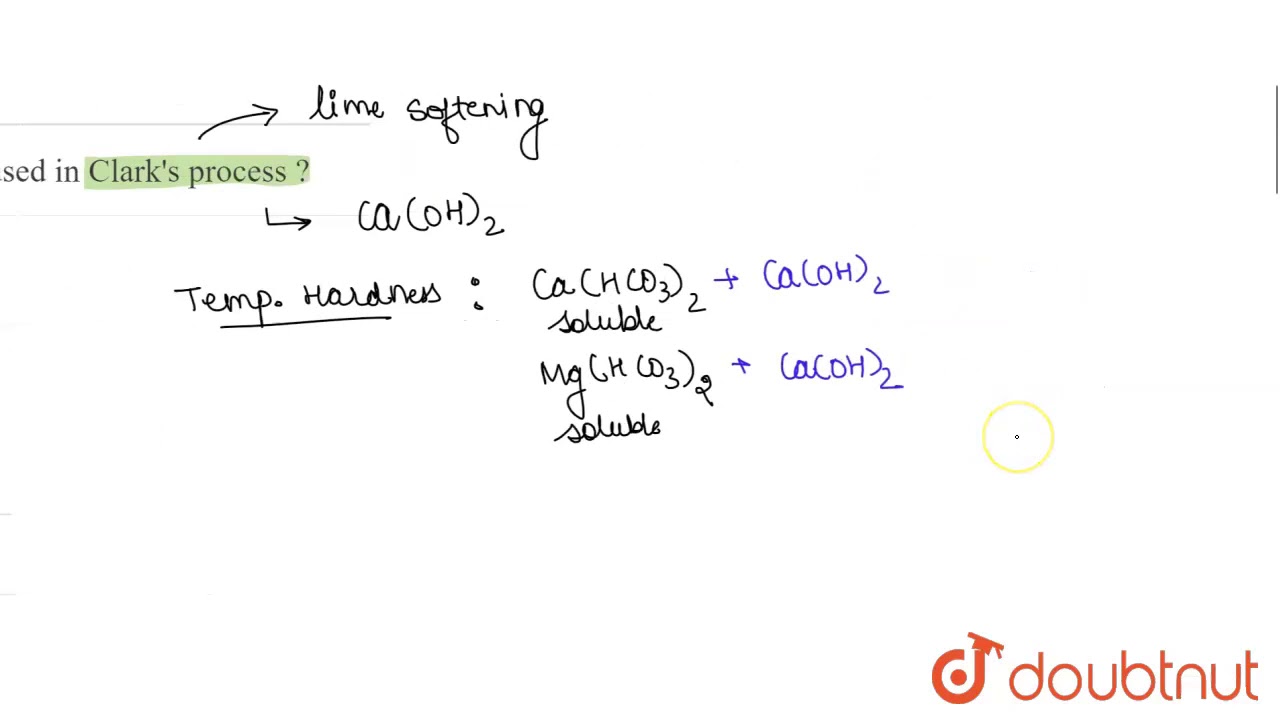 lime softening
used in Clark's process ?
↳ Ca(OH)2
Temp. Hardness : Ca(HCO3)2 + Ca(OH)2
soluble
Mg(HCO3)2 + Ca(OH)2
soluble
doubtnut